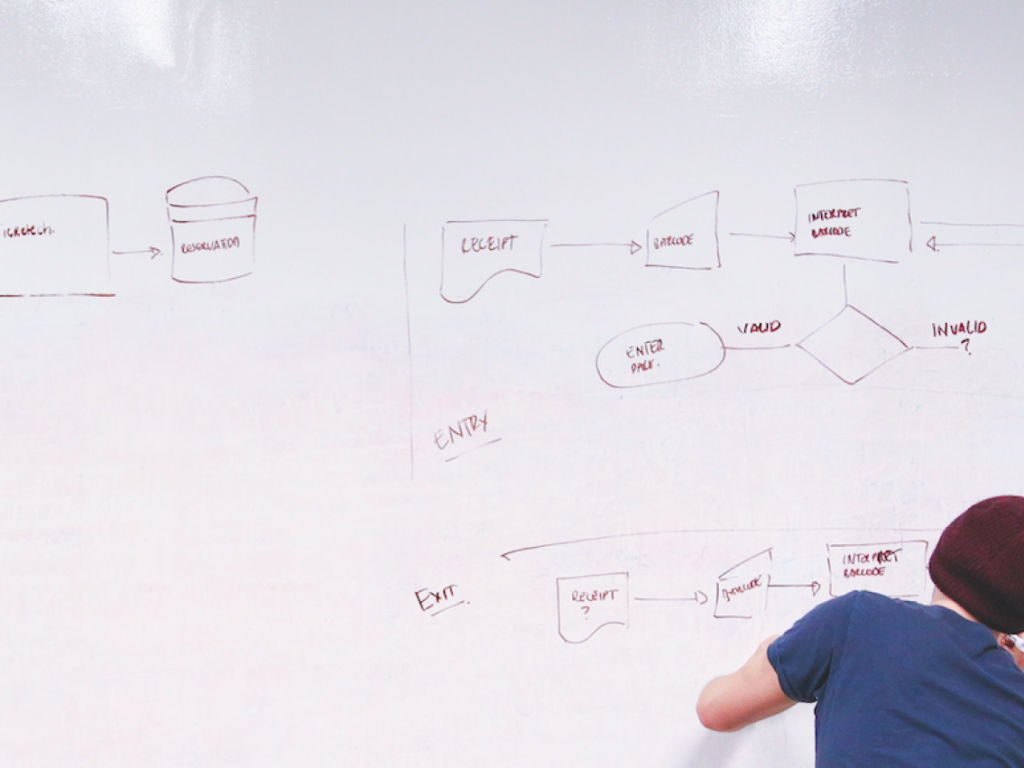 RESERVATION
RECEIPT
BARCODE
INTERPRET
BARCODE
VALID
INVALID
?
ENTER
PARK.
ENTRY
EXIT.
RECEIPT
?
BARCODE
INTERPRET
BARCODE